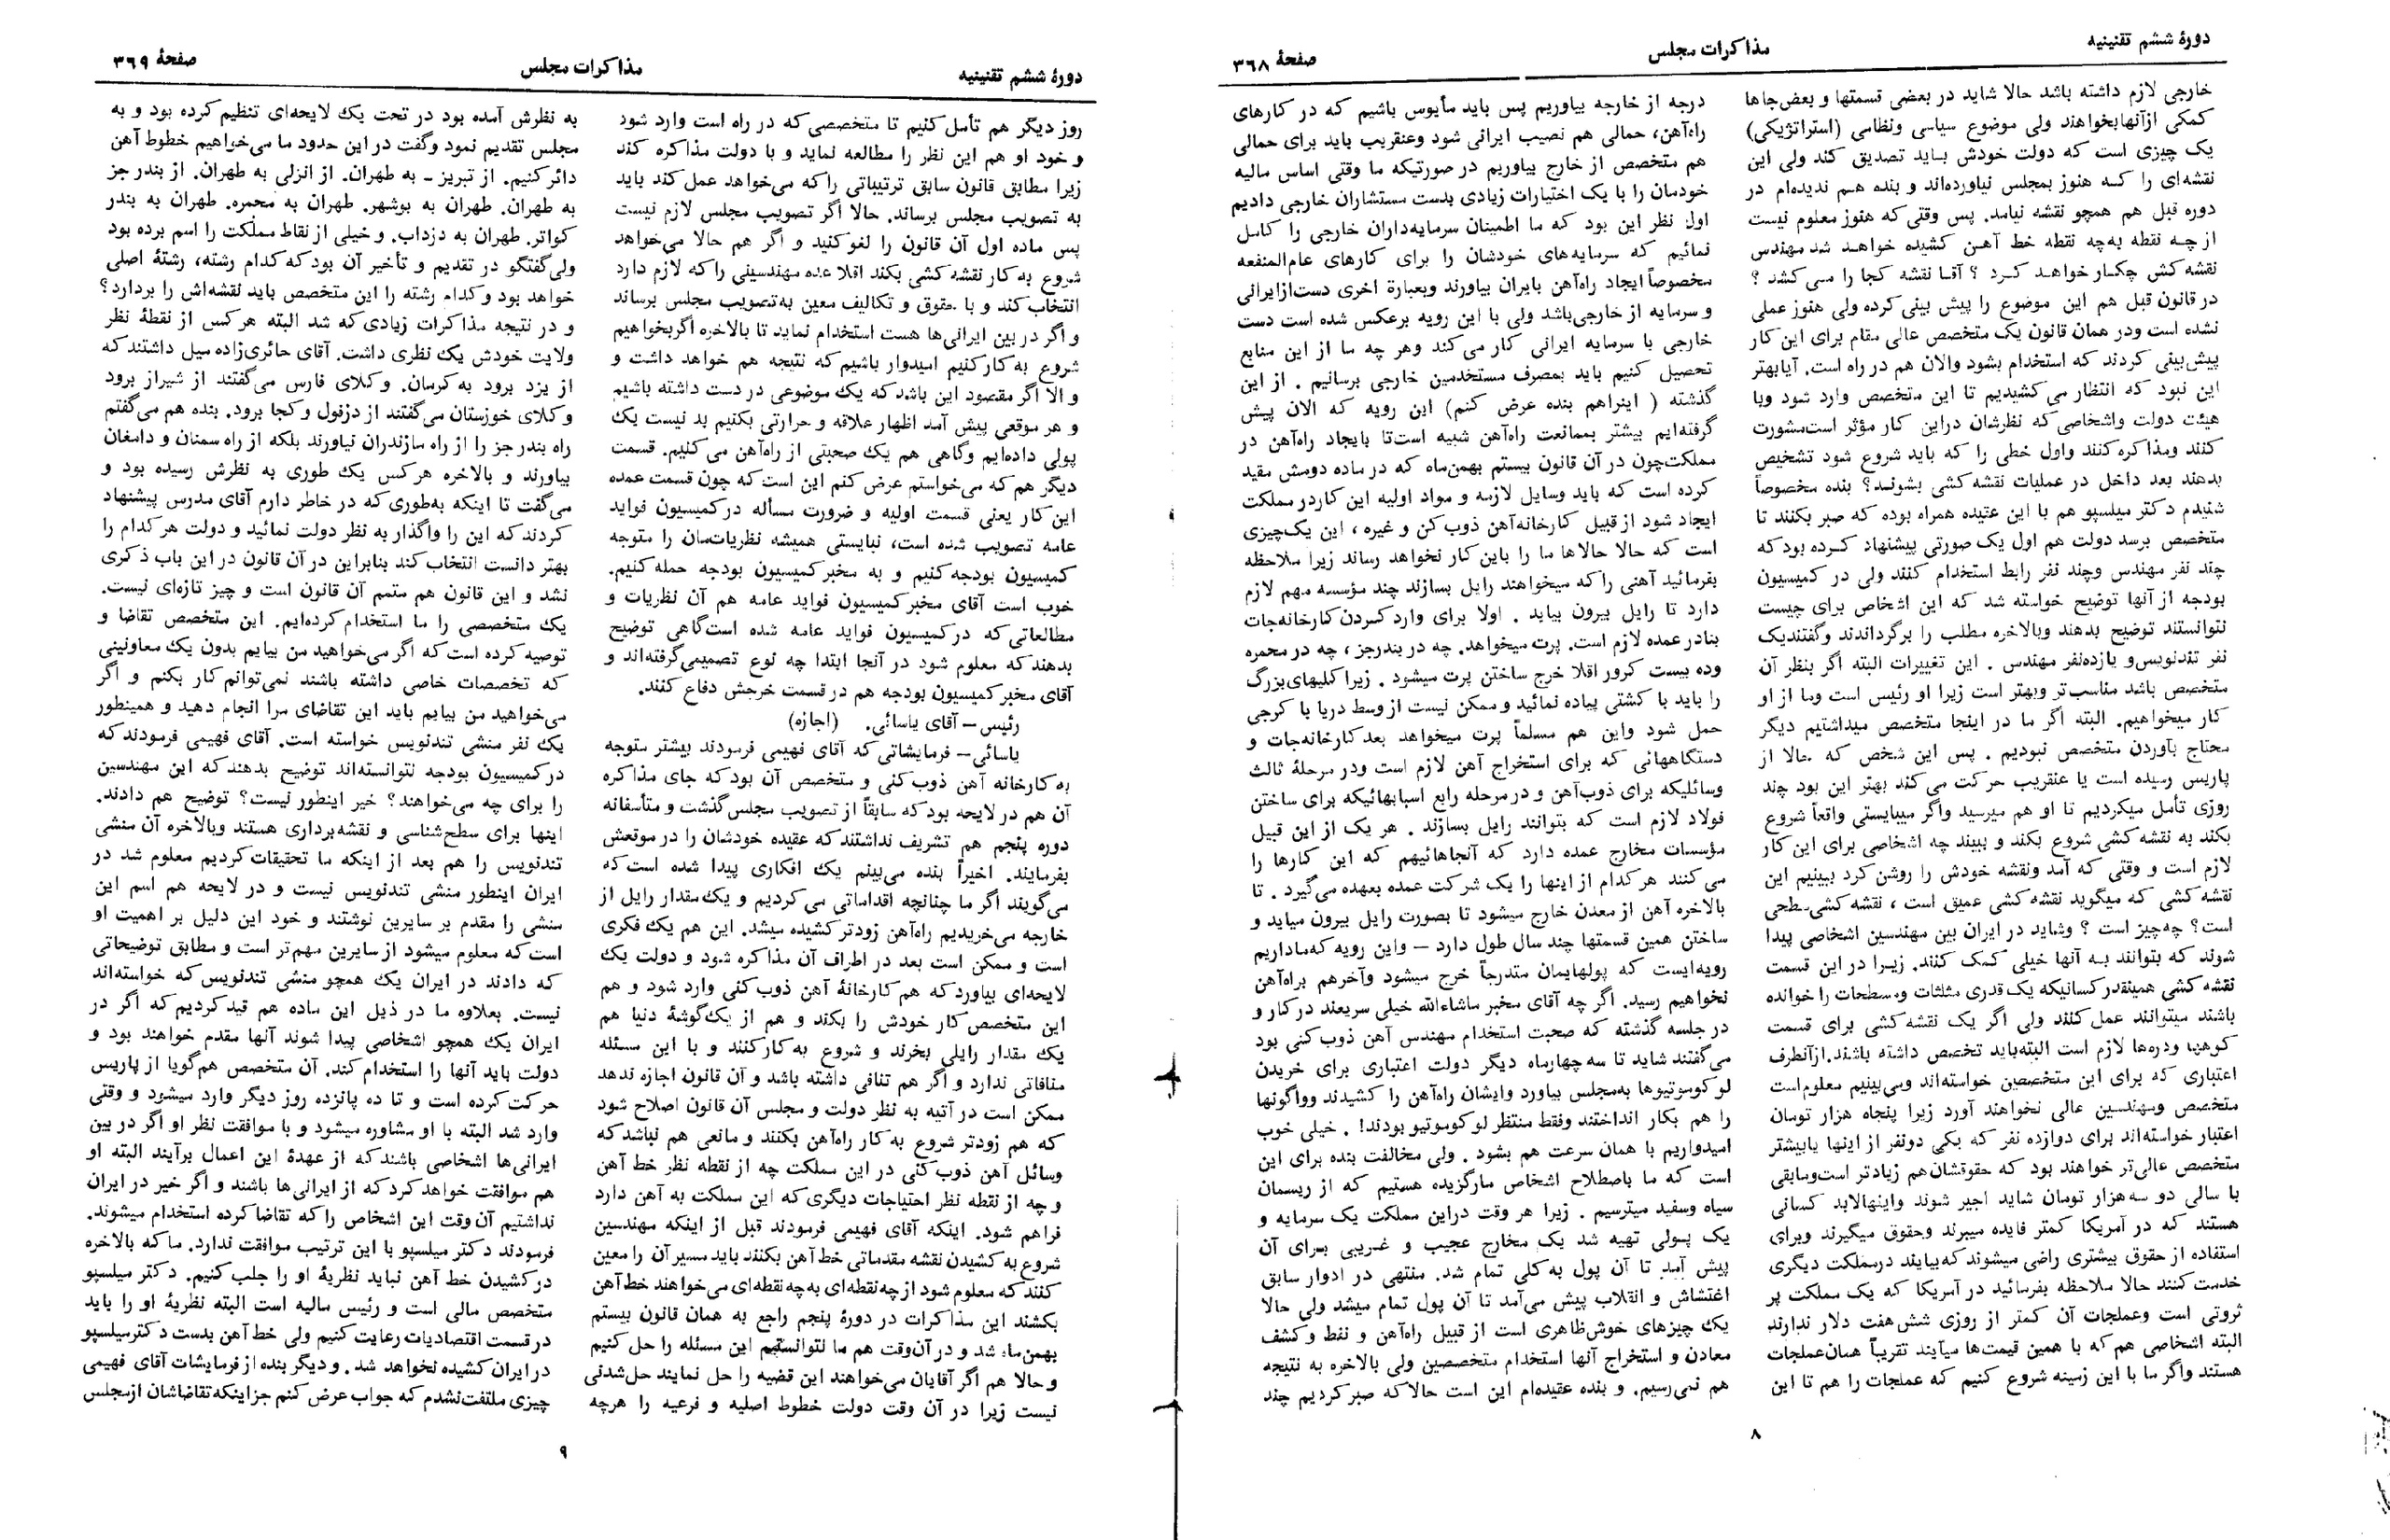 دورهٔ ششم تقنینیه
مذاکرات مجلس
صفحهٔ ۳۶۸
خارجی لازم داشته باشد حالا شاید در بعضی قسمتها و بعض‌جاها
کمکی ازآنهابخواهند ولی موضوع سیاسی ونظامی (استراتژیکی)
یک چیزی است که دولت خودش بباید تصدیق کند ولی این
نقشه‌ای را کـه هنوز بمجلس نیاورده‌اند و بنده هـم ندیده‌ام در
دوره قبل هم همچو نقشه نیامد. پس وقتی‌که هنوز معلوم نیست
ازچـه نقطه به‌چه نقطه خط آهـن کشیده خواهـد شد مهندس
نقشه‌کش چکـار خواهـد کـرد ؟ آقـا نقشه کجا را مـی کشد ؟
در قانون قبل هم این موضوع را پیش بینی کرده ولی هنوز عملی
نشده است ودر همان قانون یک متخصص عالی مقام برای این کار
پیش‌بینی کردند که استخدام بشود والان هم در راه است. آیابهتر
این نبود که انتظار می کشیدیم تا این متخصص وارد شود وبا
هیئت دولت واشخاصی که نظرشان دراین کار مؤثر است‌مشورت
کنند ومذاکره‌کنند واول خطی را که باید شروع شود تشخیص
بدهند بعد داخل در عملیات نقشه کشی بشونـد؟ بنده مخصوصاً
شنیدم دکتر میلسپو هم با این عقیده همراه بوده که صبر بکنند تا
متخصص برسد دولت هم اول یک صورتی پیشنهاد کـرده بود که
چند نفر مهندس وچند نفر رابط استخدام کنند ولی در کمیسیون
بودجه از آنها توضیح خواسته شد که این اشخاص برای چیست
نتوانستند توضیح بدهند وبالاخره مطلب را برگرداندند وگفتندیک
نفر تندنویس‌و یازده‌نفر مهندس . این تغییرات البته اگر بنظر آن
متخصص باشد مناسب‌تر وبهتر است زیرا او رئیس است وما از او
کار میخواهیم. البته اگر ما در اینجا متخصص میداشتیم دیگر
محتاج بآوردن متخصص نبودیم . پس این شخص که حالا از
پاریس رسیده است یا عنقریب حرکت می‌کند بهتر این بود چند
روزی تأمل میکردیم تا او هم میرسید واگر میبایستی واقعاً شروع
بکند به نقشه کشی شروع بکند و ببیند چه اشخاصی برای این کار
لازم است و وقتی که آمد ونقشه خودش را روشن کرد ببینیم این
نقشه کشی که میگوید نقشه کشی عمیق است ، نقشه کشی‌سطحی
است؟ چه‌چیز است ؟ وشاید در ایران بین مهندسین اشخاصی پیدا
شوند که بتوانند بـه آنها خیلی کمک کنند. زیـرا در این قسمت
نقشه کشی همینقدرکسانیکه یک قدری مثلثات ومسطحات را خوانده
باشند میتوانند عمل کنند ولی اگر یک نقشه کشی برای قسمت
کوهها ودره‌ها لازم است البته‌باید تخصص داشته باشند.ازآنطرف
اعتباری که برای این متخصصین خواسته‌اند ومی‌بینیم معلوم‌است
متخصص ومهندسین عالی نخواهند آورد زیرا پنجاه هزار تومان
اعتبار خواسته‌اند برای دوازده نفر که یکی دونفر از اینها یابیشتر
متخصص عالی‌تر خواهند بود که حقوقشان‌هم زیادتر است‌ومابقی
با سالی دو سه‌هزار تومان شاید اجیر شوند واینهالابد کسانی
هستند که در آمریکا کمتر فایده میبرند وحقوق میگیرند وبرای
استفاده از حقوق بیشتری راضی میشوند که‌بیایند درمملکت دیگری
خدمت کنند حالا ملاحظه بفرمائید در آمریکا که یک مملکت پر
ثروتی است وعملجات آن کمتر از روزی شش‌هفت دلار ندارند
البته اشخاصی هم‌که با همین قیمت‌ها میآیند تقریباً همان‌عملجات
هستند واگر ما با این زمینه شروع کنیم که عملجات را هم تا این
درجه از خارجه بیاوریم پس باید مأیوس باشیم که در کارهای
راه‌آهن، حمالی هم نصیب ایرانی شود وعنقریب باید برای حمالی
هم متخصص از خارج بیاوریم در صورتیکه ما وقتی اساس مالیه
خودمان را با یک اختیارات زیادی بدست مستشاران خارجی دادیم
اول نظر این بود که ما اطمینان سرمایه‌داران خارجی را کامل
نمائیم که سرمایه‌های خودشان را برای کارهای عام‌المنفعه
مخصوصاً ایجاد راه‌آهن بایران بیاورند وبعبارة اخری دست‌ازایرانی
و سرمایه از خارجی‌باشد ولی با این رویه برعکس شده است دست
خارجی با سرمایه ایرانی کار می‌کند وهر چه ما از این منابع
تحصیل کنیم باید بمصرف مستخدمین خارجی برسانیم . از این
گذشته ( اینراهم بنده عرض کنم) این رویه که الان پیش
گرفته‌ایم بیشتر بممانعت راه‌آهن شبیه است‌تا بایجاد راه‌آهن در
مملکت‌چون در آن قانون بیستم بهمن‌ماه که در ماده دومش مقید
کرده است که باید وسایل لازمه و مواد اولیه این کاردر مملکت
ایجاد شود از قبیل کارخانه‌آهن ذوب‌کن و غیره ، این یک‌چیزی
است که حالا حالاها ما را باین کار نخواهد رساند زیرا ملاحظه
بفرمائید آهنی را که میخواهند رایل بسازند چند مؤسسه مهم لازم
دارد تا رایل بیرون بیاید . اولا برای وارد کردن کارخانه‌جات
بنادر عمده لازم است. پرت میخواهد. چه در بندرجز ، چه در محمره
وده بیست کرور اقلا خرج ساختن پرت میشود . زیرا کلیهای‌بزرگ
را باید با کشتی پیاده نمائید و ممکن نیست از وسط دریا با کرجی
حمل شود واین هم مسلماً پرت میخواهد بعد کارخانه‌جات و
دستگاههائی که برای استخراج آهن لازم است ودر مرحلهٔ ثالث
وسائلیکه برای ذوب‌آهن و در مرحله رابع اسبابهائیکه برای ساختن
فولاد لازم است که بتوانند رایل بسازند . هر یک از این قبیل
مؤسسات مخارج عمده دارد که آنجاهائیهم که این کارها را
می کنند هرکدام از اینها را یک شرکت عمده بعهده می‌گیرد . تا
بالاخره آهن از معدن خارج میشود تا بصورت رایل بیرون میاید و
ساختن همین قسمتها چند سال طول دارد — واین رویه که‌ماداریم
رویه‌ایست که پولهایمان متدرجاً خرج میشود وآخرهم براه‌آهن
نخواهیم رسید. اگر چه آقای مخبر ماشاءالله خیلی سریعند درکار و
در جلسه گذشته که صحبت استخدام مهندس آهن ذوب کنی بود
می‌گفتند شاید تا سه چهارماه دیگر دولت اعتباری برای خریدن
لوکوموتیوها به‌مجلس بیاورد وایشان راه‌آهن را کشیدند وواگونها
را هم بکار انداختند وفقط منتظر لوکوموتیو بودند! . خیلی خوب
امیدواریم با همان سرعت هم بشود . ولی مخالفت بنده برای این
است که ما باصطلاح اشخاص مارگزیده هستیم که از ریسمان
سیاه وسفید میترسیم . زیرا هر وقت دراین مملکت یک سرمایه و
یک پـولی تهیه شد یک مخارج عجیب و غـریبی بـرای آن
پیش آمد تا آن پول به‌کلی تمام شد. منتهی در ادوار سابق
اغتشاش و انقلاب پیش می‌آمد تا آن پول تمام میشد ولی حالا
یک چیزهای خوش‌ظاهری است از قبیل راه‌آهن و نفط وکشف
معادن و استخراج آنها استخدام متخصصین ولی بالاخره به نتیجه
هم نمی‌رسیم. و بنده عقیده‌ام این است حالاکه صبرکردیم چند
۸
دورهٔ ششم تقنینیه
مذاکرات مجلس
صفحهٔ ۳۶۹
روز دیگر هم تأمل کنیم تا متخصصی‌که در راه است وارد شود
و خود او هم این نظر را مطالعه نماید و با دولت مذاکره کند
زیرا مطابق قانون سابق ترتیباتی راکه می‌خواهد عمل کند باید
به تصویب مجلس برساند. حالا اگر تصویب مجلس لازم نیست
پس ماده اول آن قانون را لغو کنید و اگر هم حالا می‌خواهد
شروع به کار نقشه کشی بکند اقلا عده مهندسینی را که لازم دارد
انتخاب کند و با حقوق و تکالیف معین به‌تصویب مجلس برساند
و اگر در بین ایرانی‌ها هست استخدام نماید تا بالاخره اگربخواهیم
شروع به کار کنیم امیدوار باشیم که نتیجه هم خواهد داشت و
و الا اگر مقصود این باشد که یک موضوعی در دست داشته باشیم
و هر موقعی پیش آمد اظهار علاقه و حرارتی بکنیم بد نیست یک
پولی داده‌ایم وگاهی هم یک صحبتی از راه‌آهن می کنیم. قسمت
دیگر هم که می‌خواستم عرض کنم این است که چون قسمت عمده
این کار یعنی قسمت اولیه و ضرورت مسأله در کمیسیون فواید
عامه تصویب شده است، نبایستی همیشه نظریات‌مان را متوجه
کمیسیون بودجه کنیم و به مخبر کمیسیون بودجه حمله کنیم.
خوب است آقای مخبر کمیسیون فواید عامه هم آن نظریات و
مطالعاتی که در کمیسیون فواید عامه شده است‌گاهی توضیح
بدهند که معلوم شود در آنجا ابتدا چه نوع تصمیمی‌گرفته‌اند و
آقای مخبر کمیسیون بودجه هم در قسمت خرجش دفاع کنند.
رئیس — آقای یاسائی. (اجازه)
یاسائی— فرمایشاتی که آقای فهیمی فرمودند بیشتر متوجه
به کارخانه آهن ذوب‌کنی و متخصص آن بود که جای مذاکره
آن هم در لایحه بود که سابقاً از تصویب مجلس گذشت و متأسفانه
دوره پنجم هم تشریف نداشتند که عقیده خودشان را در موقعش
بفرمایند. اخیراً بنده می‌بینم یک افکاری پیدا شده است که
می‌گویند اگر ما چنانچه اقداماتی می‌کردیم و یک‌مقدار رایل از
خارجه می‌خریدیم راه‌آهن زودتر کشیده میشد. این هم یک فکری
است و ممکن است بعد در اطراف آن مذاکره شود و دولت یک
لایحه‌ای بیاورد که هم کارخانهٔ آهن ذوب‌کنی وارد شود و هم
این متخصص کار خودش را بکند و هم از یک‌گوشهٔ دنیا هم
یک مقدار رایلی بخرند و شروع به کار کنند و با این مسئله
منافاتی ندارد و اگر هم تنافی داشته باشد و آن قانون اجازه ندهد
ممکن است در آتیه به نظر دولت و مجلس آن قانون اصلاح شود
که هم زودتر شروع به کار راه‌آهن بکنند و مانعی هم نباشد که
وسائل آهن ذوب‌کنی در این مملکت چه از نقطه نظر خط آهن
و چه از نقطه نظر احتیاجات دیگری که این مملکت به آهن دارد
فراهم شود. اینکه آقای فهیمی فرمودند قبل از اینکه مهندسین
شروع به کشیدن نقشه مقدماتی خط آهن بکنند باید مسیر آن را معین
کنند که معلوم شود از چه نقطه‌ای به چه نقطه‌ای می‌خواهند خط آهن
بکشند این مذاکرات در دورهٔ پنجم راجع به همان قانون بیستم
بهمن‌ماه شد و در آن‌وقت هم ما نتوانستیم این مسئله را حل کنیم
و حالا هم اگر آقایان می‌خواهند این قضیه را حل نمایند حل‌شدنی
نیست زیرا در آن وقت دولت خطوط اصلیه و فرعیه را هرچه
به نظرش آمده بود در تحت یک لایحه‌ای تنظیم کرده بود و به
مجلس تقدیم نمود وگفت در این حدود ما می‌خواهیم خطوط آهن
دائر کنیم. از تبریز ـ به طهران. از انزلی به طهران. از بندر جز
به طهران. طهران به بوشهر. طهران به محمره. طهران به بندر
کواتر. طهران به دزداب. و خیلی از نقاط مملکت را اسم برده بود
ولی گفتگو در تقدیم و تأخیر آن بود که کدام رشته، رشتهٔ اصلی
خواهد بود و کدام رشته را این متخصص باید نقشه‌اش را بردارد؟
و در نتیجه مذاکرات زیادی که شد البته هرکس از نقطهٔ نظر
ولایت خودش یک نظری داشت. آقای حائری‌زاده میل داشتند که
از یزد برود به کرمان. وکلای فارس می‌گفتند از شیراز برود
وکلای خوزستان می‌گفتند از دزفول و کجا برود. بنده هم می‌گفتم
راه بندر جز را از راه مازندران نیاورند بلکه از راه سمنان و دامغان
بیاورند و بالاخره هرکس یک طوری به نظرش رسیده بود و
می‌گفت تا اینکه به‌طوری که در خاطر دارم آقای مدرس پیشنهاد
کردند که این را واگذار به نظر دولت نمائید و دولت هر کدام را
بهتر دانست انتخاب کند بنابراین در آن قانون در این باب ذکری
نشد و این قانون هم متمم آن قانون است و چیز تازه‌ای نیست.
یک متخصصی را ما استخدام کرده‌ایم. این متخصص تقاضا و
توصیه کرده است که اگر می‌خواهید من بیایم بدون یک معاونینی
که تخصصات خاصی داشته باشند نمی‌توانم کار بکنم و اگر
می‌خواهید من بیایم باید این تقاضای مرا انجام دهید و همینطور
یک نفر منشی تندنویس خواسته است. آقای فهیمی فرمودند که
در کمیسیون بودجه نتوانسته‌اند توضیح بدهند که این مهندسین
را برای چه می‌خواهند؟ خیر اینطور نیست؟ توضیح هم دادند.
اینها برای سطح‌شناسی و نقشه‌برداری هستند وبالاخره آن منشی
تندنویس را هم بعد از اینکه ما تحقیقات کردیم معلوم شد در
ایران اینطور منشی تندنویس نیست و در لایحه هم اسم این
منشی را مقدم بر سایرین نوشتند و خود این دلیل بر اهمیت او
است که معلوم میشود از سایرین مهم‌تر است و مطابق توضیحاتی
که دادند در ایران یک همچو منشی تندنویس که خواسته‌اند
نیست. بعلاوه ما در ذیل این ماده هم قید کردیم که اگر در
ایران یک همچو اشخاصی پیدا شوند آنها مقدم خواهند بود و
دولت باید آنها را استخدام کند. آن متخصص هم گویا از پاریس
حرکت کرده است و تا ده پانزده روز دیگر وارد میشود و وقتی
وارد شد البته با او مشاوره میشود و با موافقت نظر او اگر در بین
ایرانی‌ها اشخاصی باشند که از عهدهٔ این اعمال برآیند البته او
هم موافقت خواهد کرد که از ایرانی‌ها باشند و اگر خیر در ایران
نداشتیم آن وقت این اشخاص را که تقاضا کرده استخدام میشوند.
فرمودند دکتر میلسپو با این ترتیب موافقت ندارد. ما که بالاخره
در کشیدن خط آهن نباید نظریهٔ او را جلب کنیم. دکتر میلسپو
متخصص مالی است و رئیس مالیه است البته نظریهٔ او را باید
در قسمت اقتصادیات رعایت کنیم ولی خط آهن بدست دکترمیلسپو
در ایران کشیده نخواهد شد. و دیگر بنده از فرمایشات آقای فهیمی
چیزی ملتفت نشدم که جواب عرض کنم جز اینکه تقاضاشان از مجلس
۹